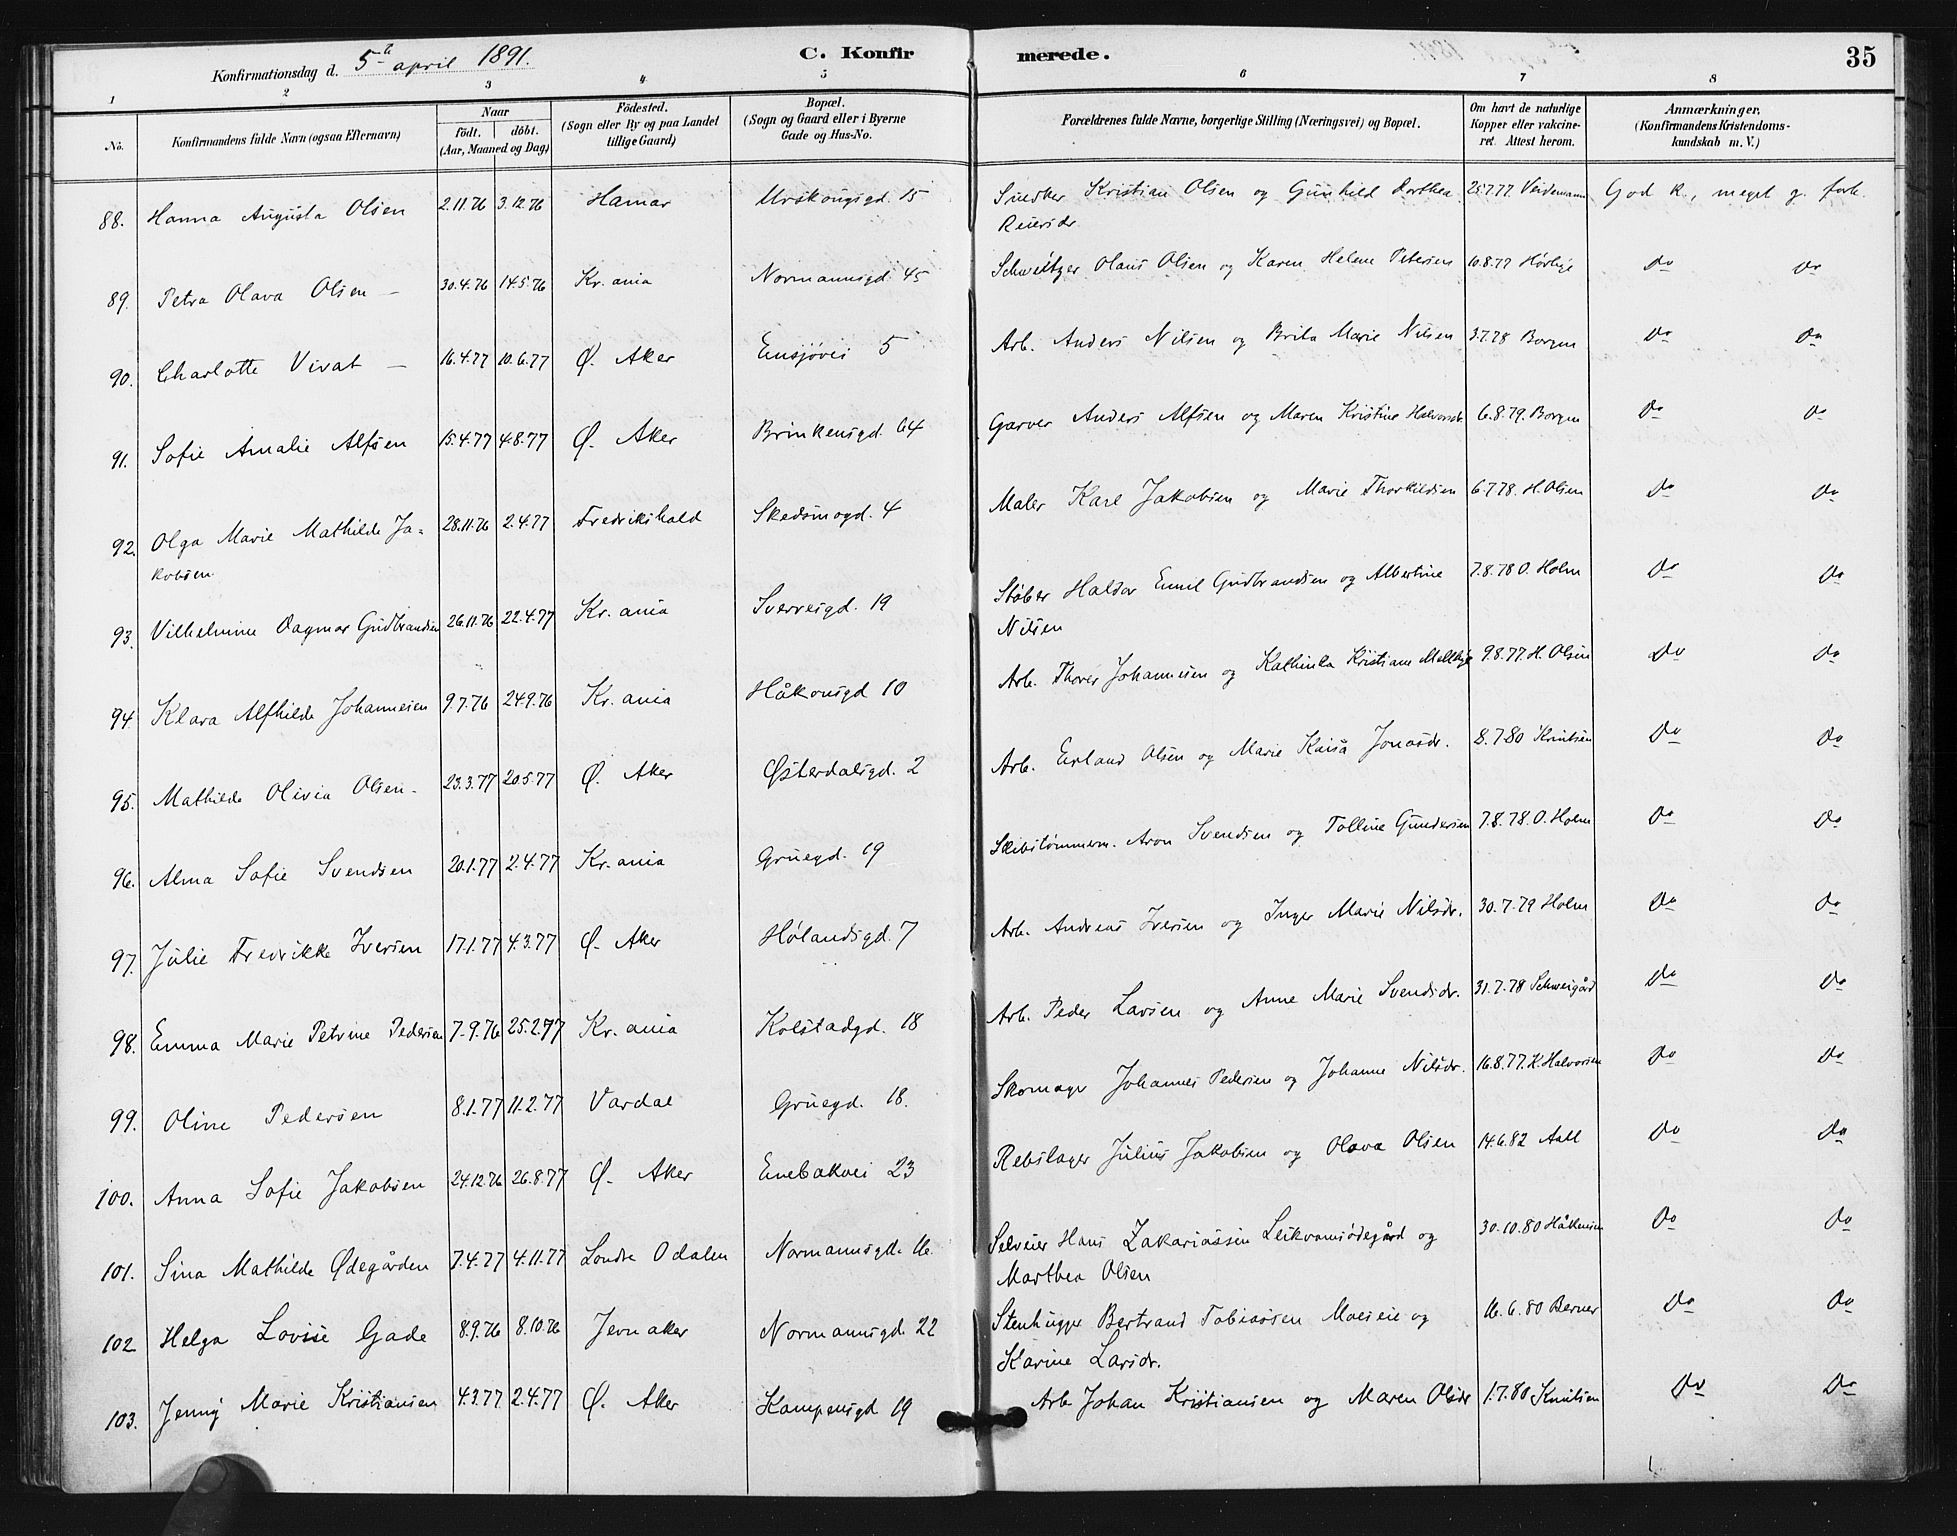 Konfirmationsdag d. 5te april 1891.
C. Konfirmerede.
35
1 2 3 4 5 6 7 8
No. Konfirmandens fulde Navn (ogsaa Efternavn) Naar födt. döbt. (Aar, Maaned og Dag) Födested. (Sogn eller By og paa Landet tillige Gaard) Bopæl. (Sogn og Gaard eller i Byerne Gade og Hus-No. Forældrenes fulde Navne, borgerlige Stilling (Næringsvei) og Bopæl. Om havt de naturlige Kopper eller vakcineret. Attest herom. Anmærkninger, (Konfirmandens Kristendomskundskab m. V.)
88. Hanna Augusta Olsen 2.11.76 3.12.76 Hamar Urskougsgd. 15 Snedker Kristian Olsen og Gunhild Dorthea 25.7.77 Veidemann God k., meget g. forh.
Reiersdr.
89. Petra Olava Olsen — 30.4.76 14.5.76 Kr.ania Normannsgd. 45 Schweitzer Olaus Olsen og Karen Helene Petersen 10.8.77 Hørbye Do Do
90. Charlotte Vivat — 16.4.77 10.6.77 Ø. Aker Ensjøvei 5 Arb. Anders Nilsen og Brita Marie Nilsen 3.7.78 Borgen Do Do
91. Sofie Amalie Alfsen 15.4.77 4.8.77 Ø. Aker Brinkensgd. 64 Garver Anders Alfsen og Maren Kristine Halvorsdr. 6.8.79. Borgen Do Do
92. Olga Marie Mathilde Ja- 28.11.76 2.4.77 Fredrikshald Skedsmogd. 4 Maler Karl Jakobsen og Marie Thorkildsen 6.7.78. H. Olsen Do Do
kobsen
93. Vilhelmine Dagmar Gudbrandsen 26.11.76 22.4.77 Kr.ania Sverresgd. 19 Støber Haldor Emil Gudbrandsen og Albertine 7.8.78 O. Holm Do Do
Nilsen
94. Klara Alfhilde Johannesen 9.7.76 24.9.76 Kr.ania Håkonsgd 10 Arb. Thorer Johannesen og Kathinka Kristiane 9.8.77. H. Olsen Do Do
95. Mathilde Olivia Olsen - 23.3.77 20.5.77 Ø. Aker Østerdalsgd. 2 Arb. Erland Olsen og Marie Kaisa Jonasdr. 8.7.80 Knutsen Do Do
96. Alma Sofie Svendsen 20.1.77 2.4.77 Kr.ania Gruegd. 19 Skibstømmerm. Aron Svendsen og Tolline Gundersen 7.8.78. O. Holm Do Do
97. Julie Fredrikke Iversen 17.1.77 4.3.77 Ø. Aker Hølandsgd. 7 Arb. Andreas Iversen og Inger Marie Nilsdr. 30.7.79 Holm Do Do
98. Emma Marie Petrine Pedersen 7.9.76 25.2.77 Kr.ania Kolstadgd. 18 Arb. Peder Larsen og Anne Marie Svendsdr. 31.7.78 Schweigård Do Do
99. Oline Pedersen 8.1.77 11.2.77 Vardal Gruegd. 18. Skomager Johannes Pedersen og Johanne Nilsdr. 16.8.77. K. Halvorsen Do Do
100. Anna Sofie Jakobsen 24.12.76 26.8.77 Ø. Aker Enebakvei 23 Rebslager Julius Jakobsen og Olava Olsen 14.6.82 Aall Do Do
101. Sina Mathilde Ødegården 7.4.77 4.11.77 Søndre Odalen Normannsgd. 16. Selveier Hans Zakariassen Leikvamsødegård og 30.10.80 Håkensen Do Do
Marthea Olsen
102 Helga Lovise Gade 8.9.76 8.10.76 Jevnaker Normannsgd. 22 Stenhugger Bertrand Tobiassen Moeseie og 16.6.80 Berner Do Do
Karine Larsdr.
103. Jenny Marie Kristiansen 4.3.77 2.4.77 Ø. Aker Kampensgd 19 Arb. Johan Kristiansen og Maren Olsdr 1.7.80 Knutsen Do Do